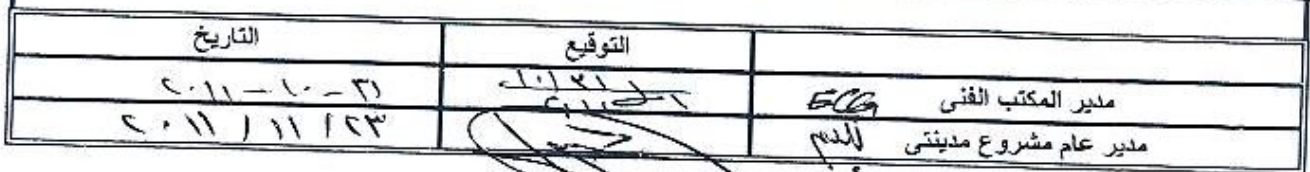 التوقيع التاريخ
مدير المكتب الفنى ECG ٣١ - ١٠ - ٢٠١١
مدير عام مشروع مدينتى ٢٣ / ١١ / ٢٠١١